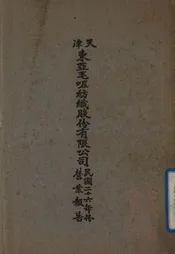 天津
東亞毛呢紡織股份有限公司
民國二十六年份
營業報告